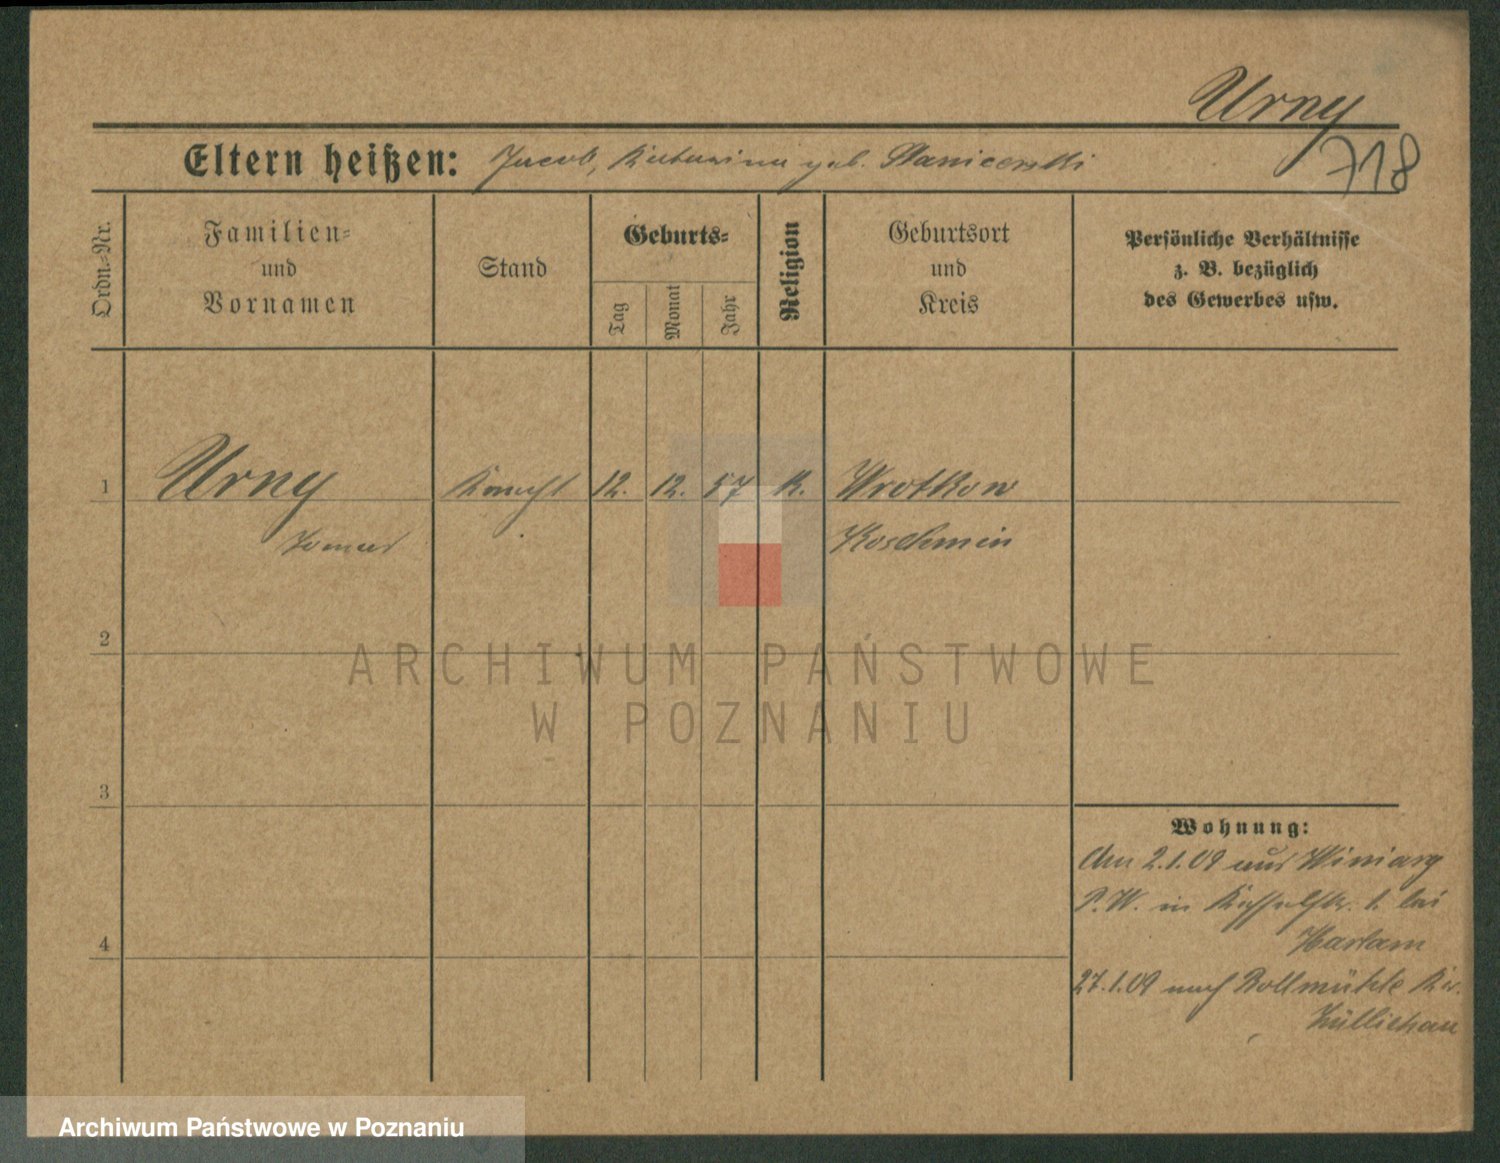 Urny
718
Eltern heißen: Jacob, Katarina geb. Stanicewski
Ordn.-Nr.
Familien-
und
Vornamen
Stand
Geburts-
Tag
Monat
Jahr
Religion
Geburtsort
und
Kreis
Persönliche Verhältnisse
z. B. bezüglich
des Gewerbes usw.
1 Urny Knecht 12. 12. 57 k. Wrotkow
Tomas Koschmin
2
3
4
Wohnung:
Am 2.1.09 aus Winiary
P.W. in 1. bei
Harlam
27.1.09 nach Rollmühle Kr.
Züllichau
ARCHIWUM PAŃSTWOWE
W POZNANIU
Archiwum Państwowe w Poznaniu